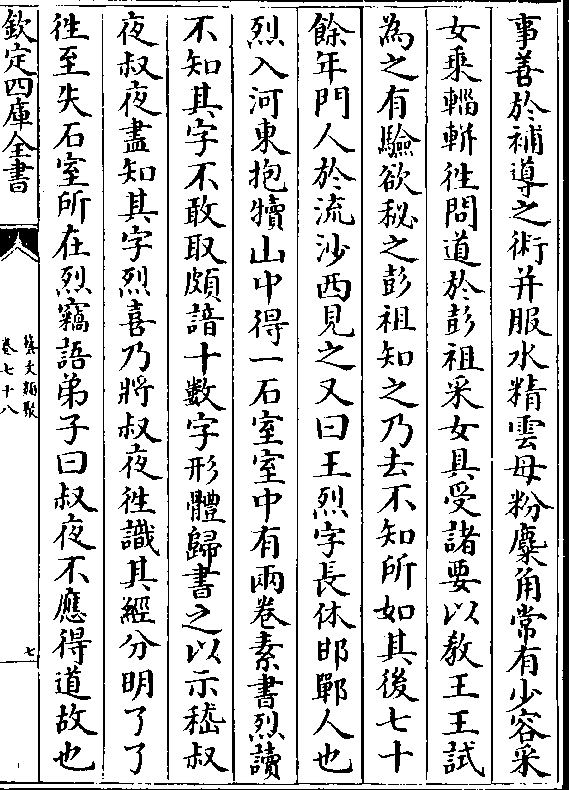 事善於補導之術并服水精雲母粉麋角常有少容采
女乘輜軿徃問道於彭祖采女具受諸要以教王王試
為之有驗欲秘之彭祖知之乃去不知所如其後七十
餘年門人於流沙西見之又曰王烈字長休邯鄲人也
烈入河東抱犢山中得一石室室中有兩卷素書烈讀
不知其字不敢取頗諳十數字形體歸書之以示嵇叔
夜叔夜盡知其字烈喜乃將叔夜徃識其經分明了了
徃至失石室所在烈竊語弟子曰叔夜不應得道故也
欽定四庫全書
藝文類聚
卷七十八
七